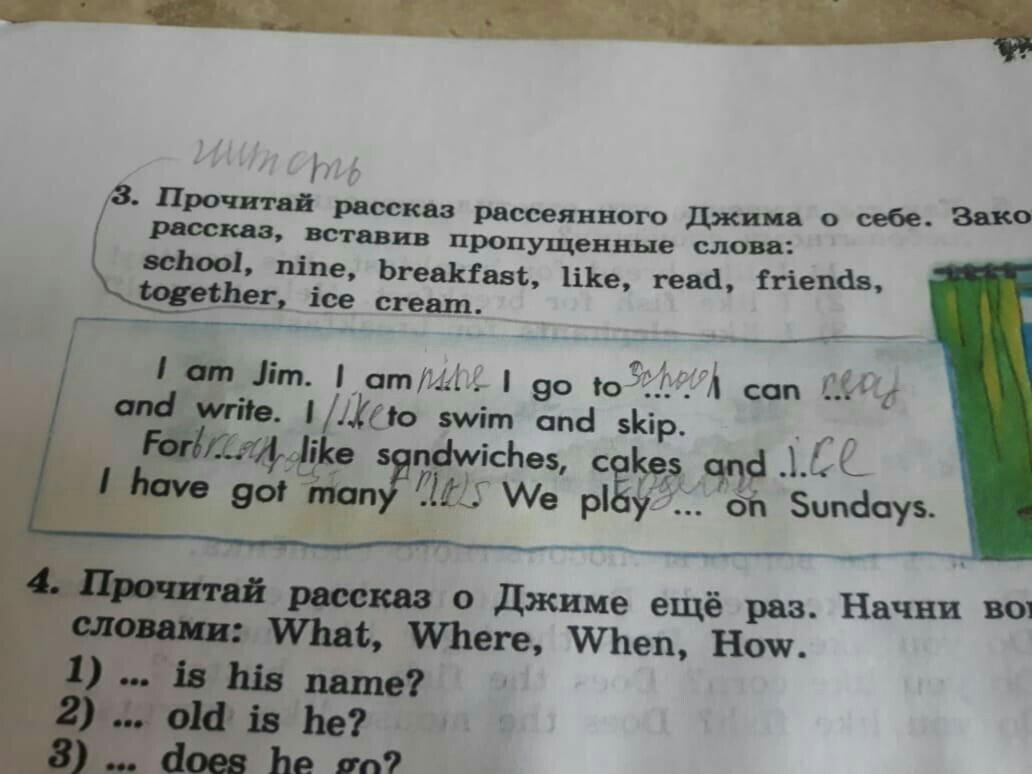 читать
3. Прочитай рассказ рассеянного Джима о себе. Зако
рассказ, вставив пропущенные слова:
school, nine, breakfast, like, read, friends,
together, ice cream.
I am Jim. I am nine I go to school. I can read
and write. I like to swim and skip.
For ... I like sandwiches, cakes and ice
I have got many .... We play ... on Sundays.
4. Прочитай рассказ о Джиме ещё раз. Начни во
словами: What, Where, When, How.
1) ... is his name?
2) ... old is he?
3) ... does he go?